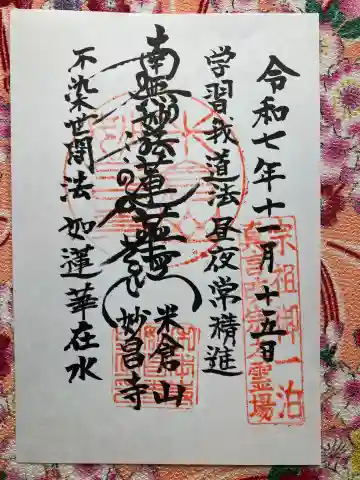 令和七年十一月十五日
宗祖御一泊
霊場
学習我道法 昼夜常精進
米倉山
妙昌寺
南無妙法蓮華経
不染世間法 如蓮華在水